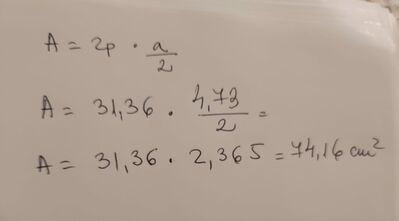 A = 2p · a/2
A = 31,36 · 4,73/2 =
A = 31,36 · 2,365 = 74,16 cm²